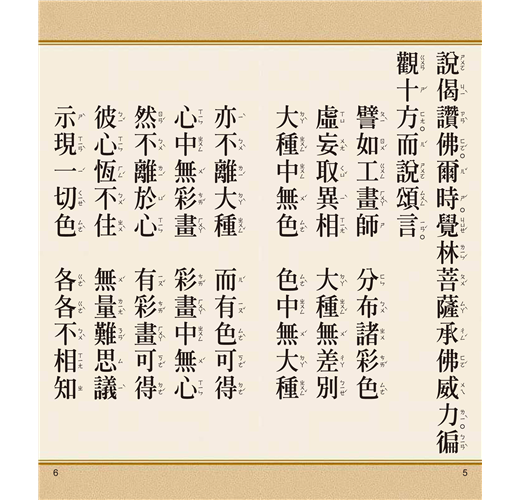 說偈讚佛。爾時。覺林菩薩承佛威力。徧
觀十方。而說頌言。
譬如工畫師 分布諸彩色
虛妄取異相 大種無差別
大種中無色 色中無大種
亦不離大種 而有色可得
心中無彩畫 彩畫中無心
然不離於心 有彩畫可得
彼心恆不住 無量難思議
示現一切色 各各不相知
5
6